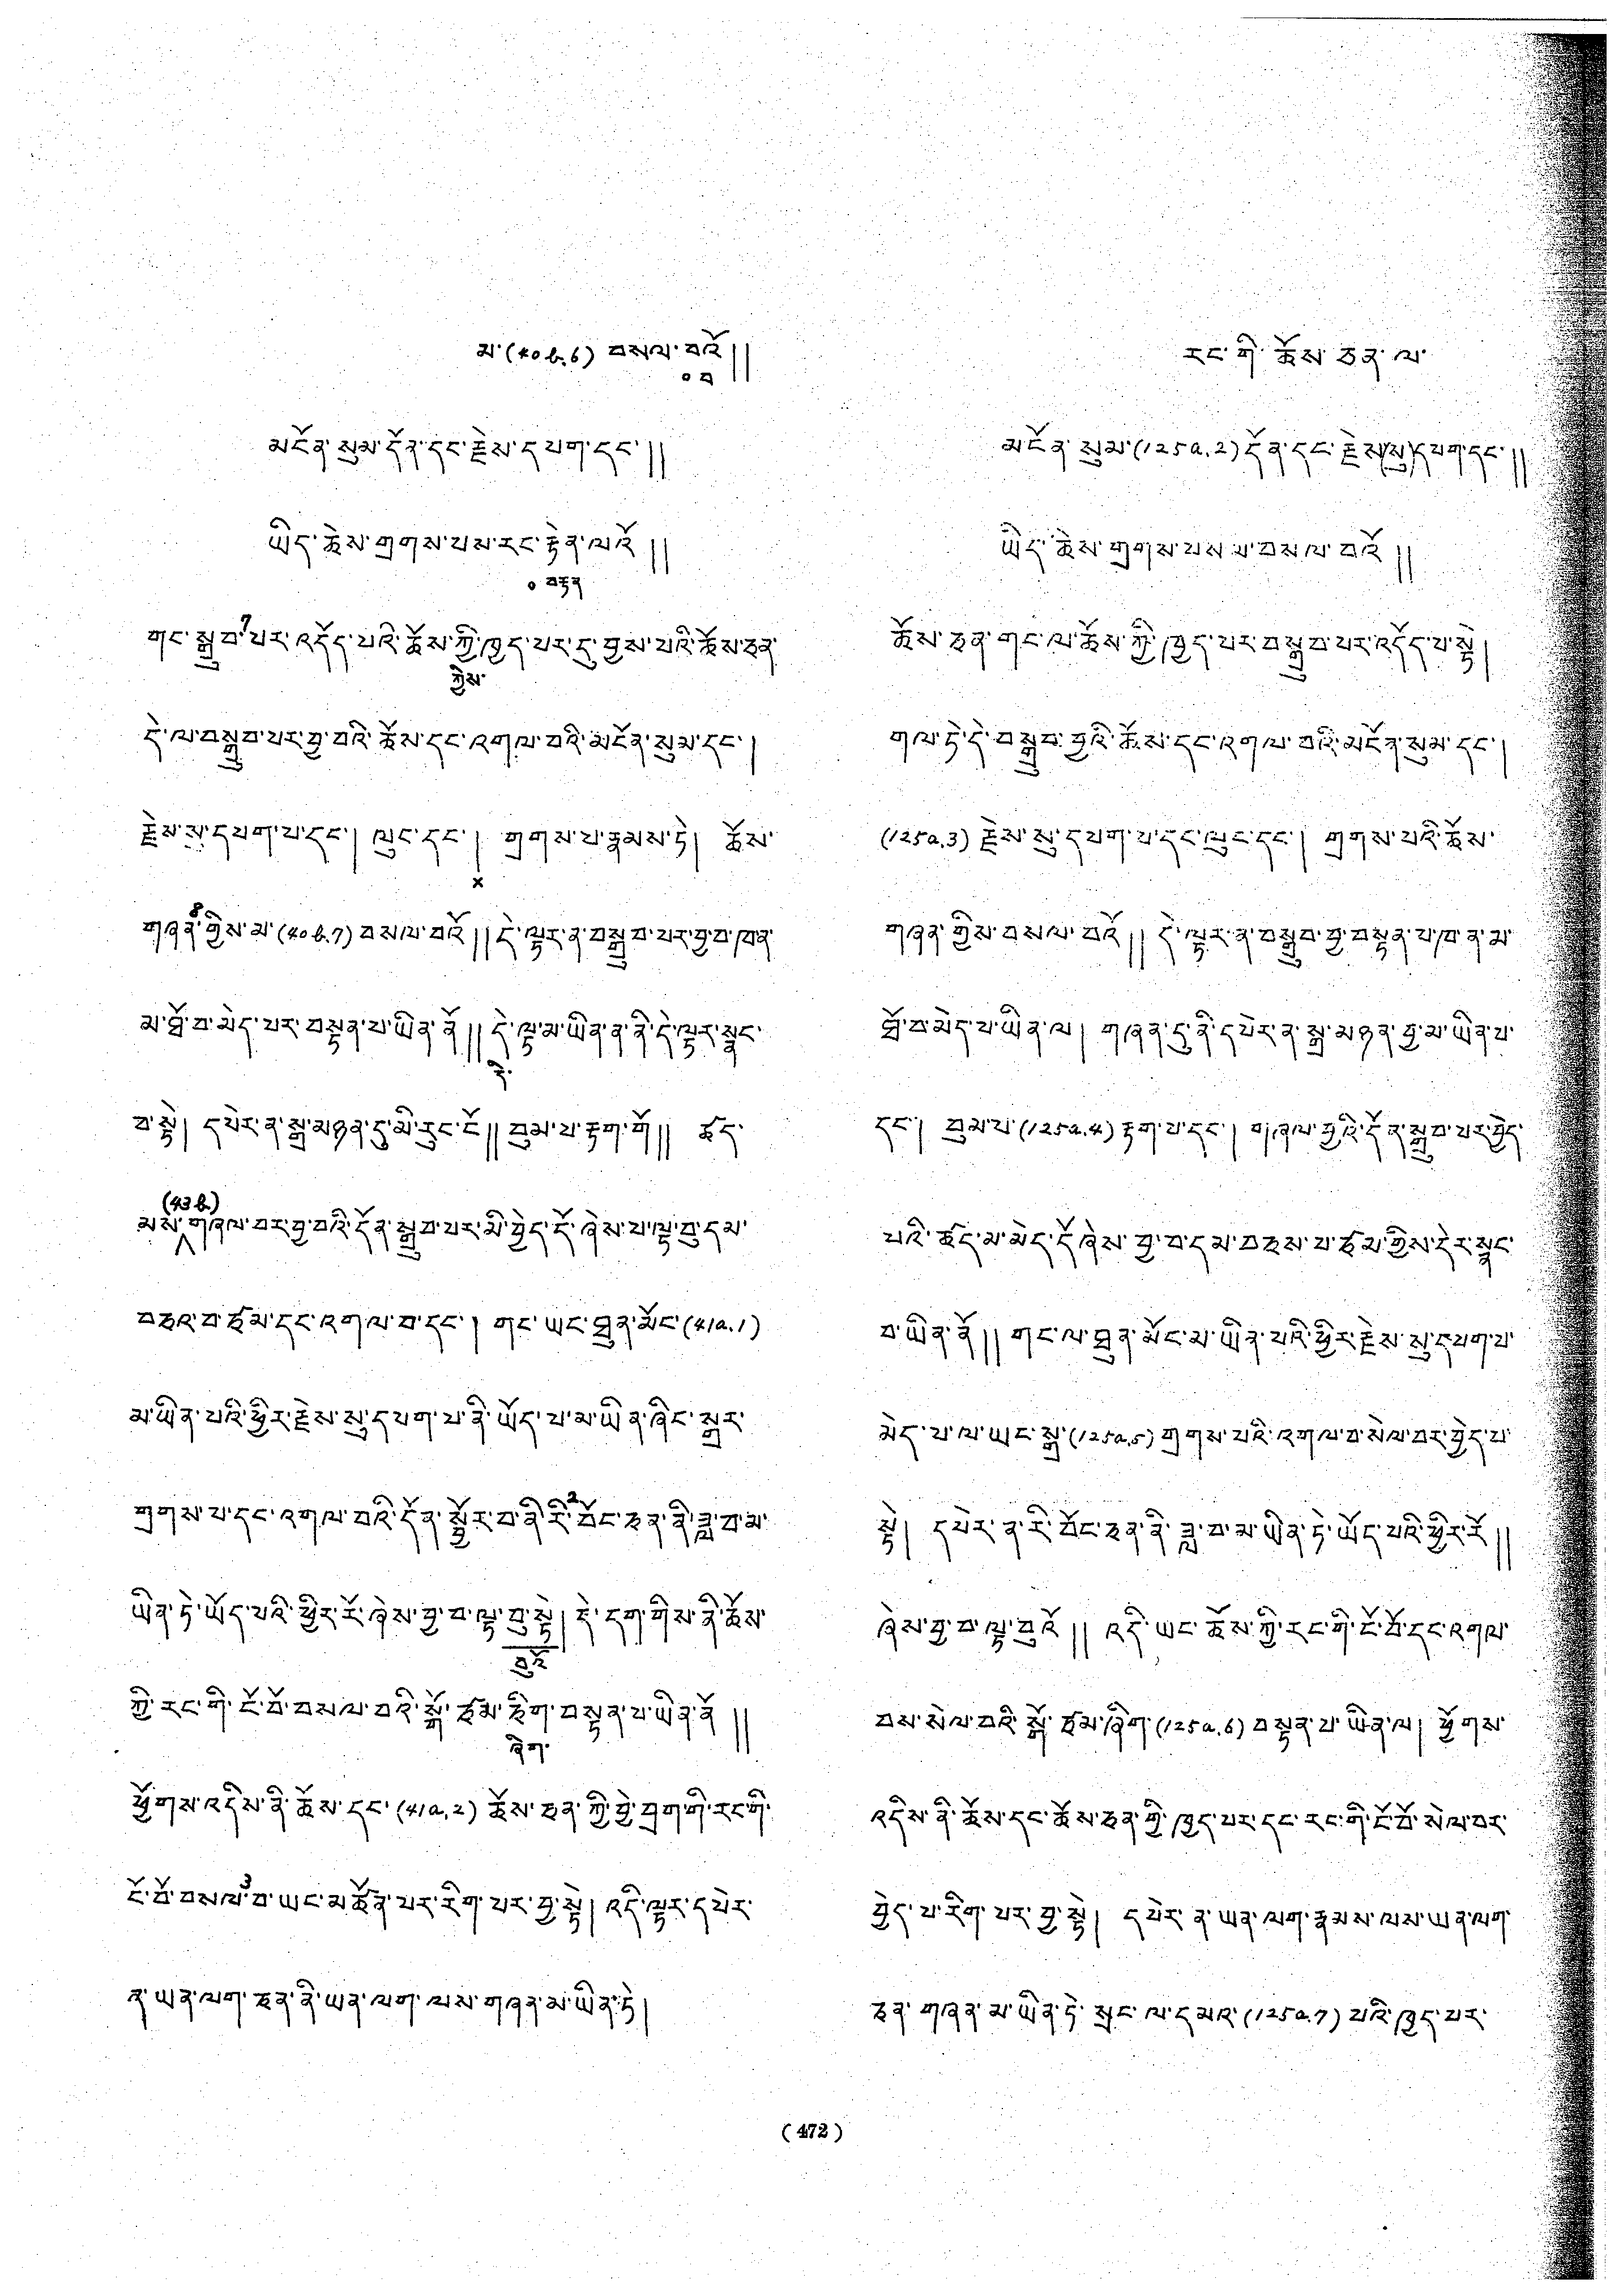 མ་(40b.6) བསལ་བའོ༎
༠བ
མངོན་སུམ་དོན་དང་རྗེས་དཔག་དང་༎
ཡིད་ཆེས་གྲགས་པས་རང་རྟེན་ལའོ༎
༠བརྟན
གང་སྒྲུབ་7པར་འདོད་པའི་ཆོས་ཀྱི་ཁྱད་པར་དུ་བྱས་པའི་ཆོས་ཅན་
ཀྱིས་
དེ་ལ་བསྒྲུབ་པར་བྱ་བའི་ཆོས་དང་འགལ་བའི་མངོན་སུམ་དང་།
རྗེས་སུ་དཔག་པ་དང་། ལུང་དང་། གྲགས་པ་རྣམས་ཏེ། ཆོས་
×
གཞན་8གྱིས་མ་(40b.7) བསལ་བའོ༎ དེ་ལྟར་ན་བསྒྲུབ་པར་བྱ་བ་ཁ་ན་
མ་ཐོ་བ་མེད་པར་བསྟན་པ་ཡིན་ནོ༎ དེ་ལྟ་མ་ཡིན་ན་ནི་དེ་ལྟར་སྣང་
དེ་
བ་སྟེ། དཔེར་ན་སྒྲ་མཉན་དུ་མི་རུང་ངོ༎ བུམ་པ་རྟག་གོ༎ ཚད་
(43b)
མས་གཞལ་བར་བྱ་བའི་དོན་སྒྲུབ་པར་མི་བྱེད་དོ་ཞེས་པ་ལྟ་བུ་དམ་
བཅའ་བ་ཙམ་དང་འགལ་བ་དང་། གང་ཡང་ཐུན་མོང་(41a.1)
མ་ཡིན་པའི་ཕྱིར་རྗེས་སུ་དཔག་པ་ནི་ཡོད་པ་མ་ཡིན་ཞིང་སྒྲར་
གྲགས་པ་དང་འགལ་བའི་དོན་སྦྱོར་བ་ནི་རི་2བོང་ཅན་ནི་ཟླ་བ་མ་
ཡིན་ཏེ་ཡོད་པའི་ཕྱིར་རོ་ཞེས་བྱ་བ་ལྟ་བུ་སྟེ། དེ་དག་གིས་ནི་ཆོས་
བུའོ
ཀྱི་རང་གི་ངོ་བོ་བསལ་བའི་སྒོ་ཙམ་ཅིག་བསྟན་པ་ཡིན་ནོ༎
ཞིག་
ཕྱོགས་འདིས་ནི་ཆོས་དང་(41a.2) ཆོས་ཅན་ཀྱི་བྱེ་བྲག་གི་རང་གི་
ངོ་བོ་བསལ་3བ་ཡང་མཚོན་པར་རིག་པར་བྱ་སྟེ། འདི་ལྟར་དཔེར་
ན་ཡན་ལག་ཅན་ནི་ཡན་ལག་ལས་གཞན་མ་ཡིན་ཏེ།
རང་གི་ཆོས་ཅན་ལ་
མངོན་སུམ་(125a.2) དོན་དང་རྗེས(སུ)དཔག་དང་༎
ཡིད་ཆེས་གྲགས་པས་མ་བསལ་བའོ༎
ཆོས་ཅན་གང་ལ་ཆོས་ཀྱི་ཁྱད་པར་བསྒྲུབ་པར་འདོད་པ་སྟེ།
གལ་ཏེ་དེ་བསྒྲུབ་བྱའི་ཆོས་དང་འགལ་བའི་མངོན་སུམ་དང་།
(125a.3) རྗེས་སུ་དཔག་པ་དང་ལུང་དང་། གྲགས་པའི་ཆོས་
གཞན་གྱིས་བསལ་བའོ༎ དེ་ལྟར་ན་བསྒྲུབ་བྱ་བསྟན་པ་ཁ་ན་མ་
ཐོ་བ་མེད་པ་ཡིན་ལ། གཞན་དུ་ནི་དཔེར་ན་སྒྲ་མཉན་བྱ་མ་ཡིན་པ་
དང་། བུམ་པ་(125a.4) རྟག་པ་དང་། གཞལ་བྱའི་དོན་སྒྲུབ་པར་བྱེད་
པའི་ཚད་མ་མེད་དོ་ཞེས་བྱ་བ་དམ་བཅས་པ་ཙམ་གྱིས་དེར་སྣང་
བ་ཡིན་ནོ༎ གང་ལ་ཐུན་མོང་མ་ཡིན་པའི་ཕྱིར་རྗེས་སུ་དཔག་པ་
མེད་པ་ལ་ཡང་སྒྲ་(125a.5) གྲགས་པའི་འགལ་བ་སེལ་བར་བྱེད་པ་
སྟེ། དཔེར་ན་རི་བོང་ཅན་ནི་ཟླ་བ་མ་ཡིན་ཏེ་ཡོད་པའི་ཕྱིར་རོ༎
ཞེས་བྱ་བ་ལྟ་བུའོ༎ འདི་ཡང་ཆོས་ཀྱི་རང་གི་ངོ་བོ་དང་འགལ་
བས་སེལ་བའི་སྒོ་ཙམ་ཞིག་(125a.6) བསྟན་པ་ཡིན་ལ། ཕྱོགས་
འདིས་ནི་ཆོས་དང་ཆོས་ཅན་གྱི་ཁྱད་པར་དང་རང་གི་ངོ་བོ་སེལ་བར་
བྱེད་པ་རིག་པར་བྱ་སྟེ། དཔེར་ན་ཡན་ལག་རྣམས་ལས་ཡན་ལག་
ཅན་གཞན་མ་ཡིན་ཏེ་སྲང་ལ་དམའ་(125a.7) བའི་ཁྱད་པར་
( 472 )